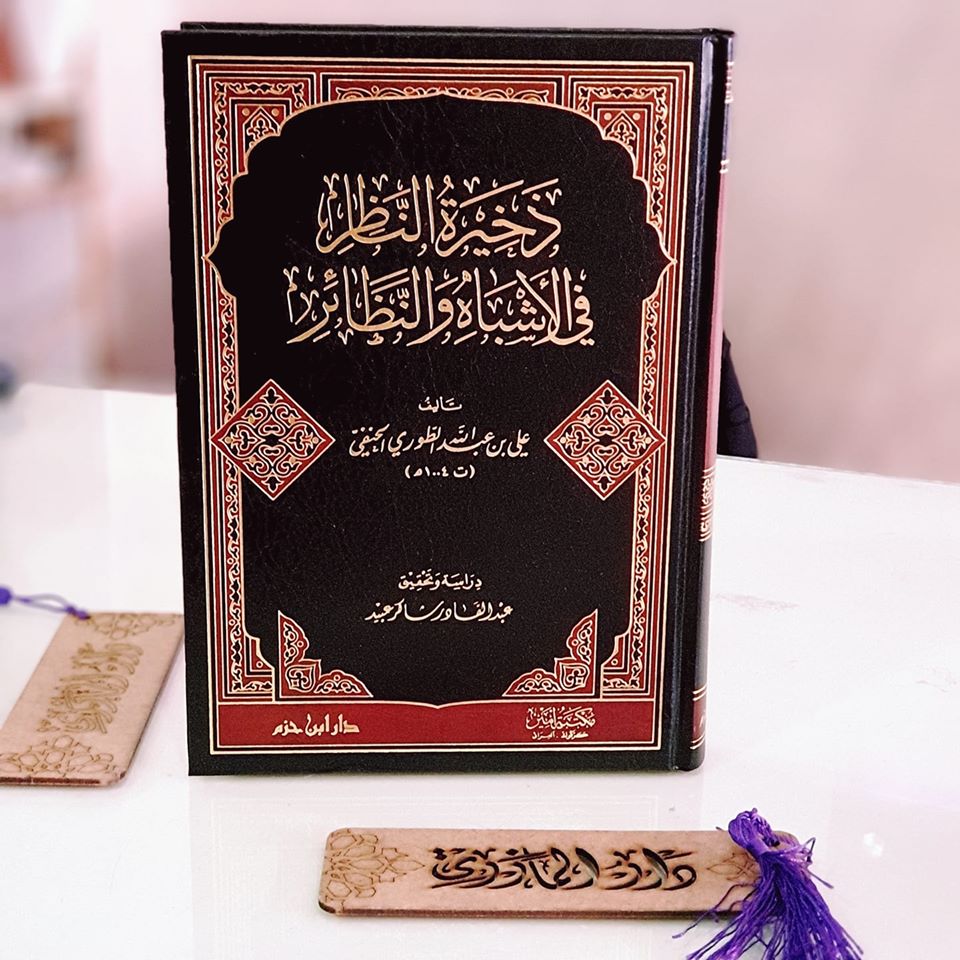 ذَخِيرَةُ النَّاظِرِ
فِي الأَشْبَاهِ وَالنَّظَائِرِ
تَأليفُ
علي بن عبد الله الطوري الحنفي
(ت ١٠٠٤ هـ)
دِرَاسَة وَتحْقِيق
عبد القادر شاكر عبيد
مكتبة أمير
كركوك - العراق
دار ابن حزم
دار المازري
دار المازري